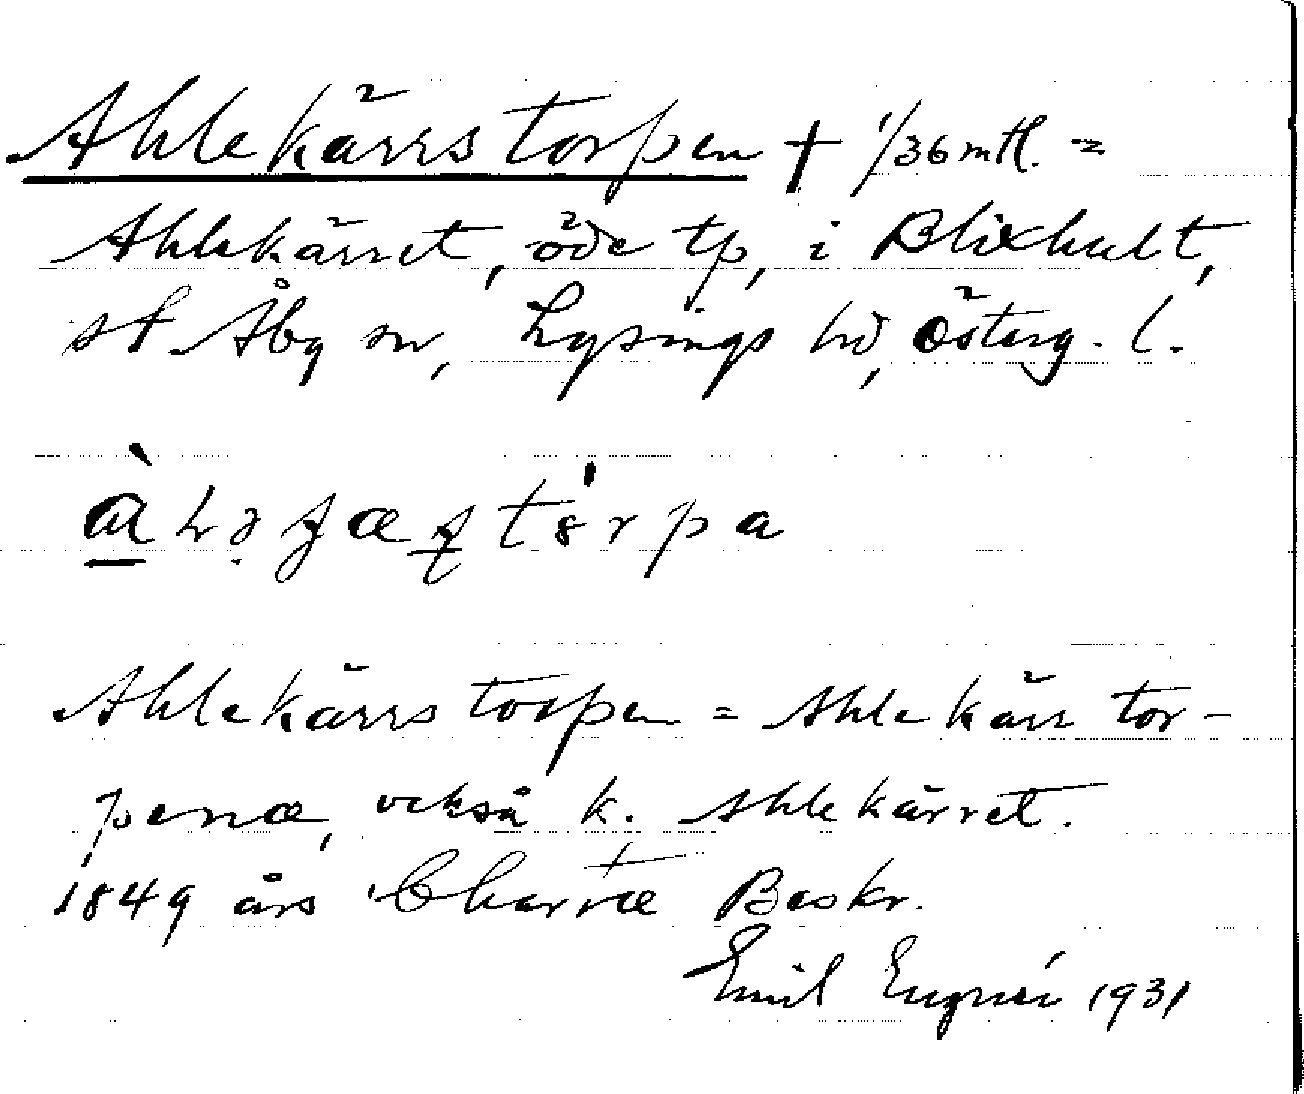 Ahlekärrstorpen † 1/36 mtl. =
Ahlekärret, öde tp, i Blixhult,
st Åby sn, Lysings hd, Österg. l.
Ahlekärrstorpen = Ahlekärr tor-
pena, också k. Ahlekärret.
1849 års Charta Beskr.
Emil 1931